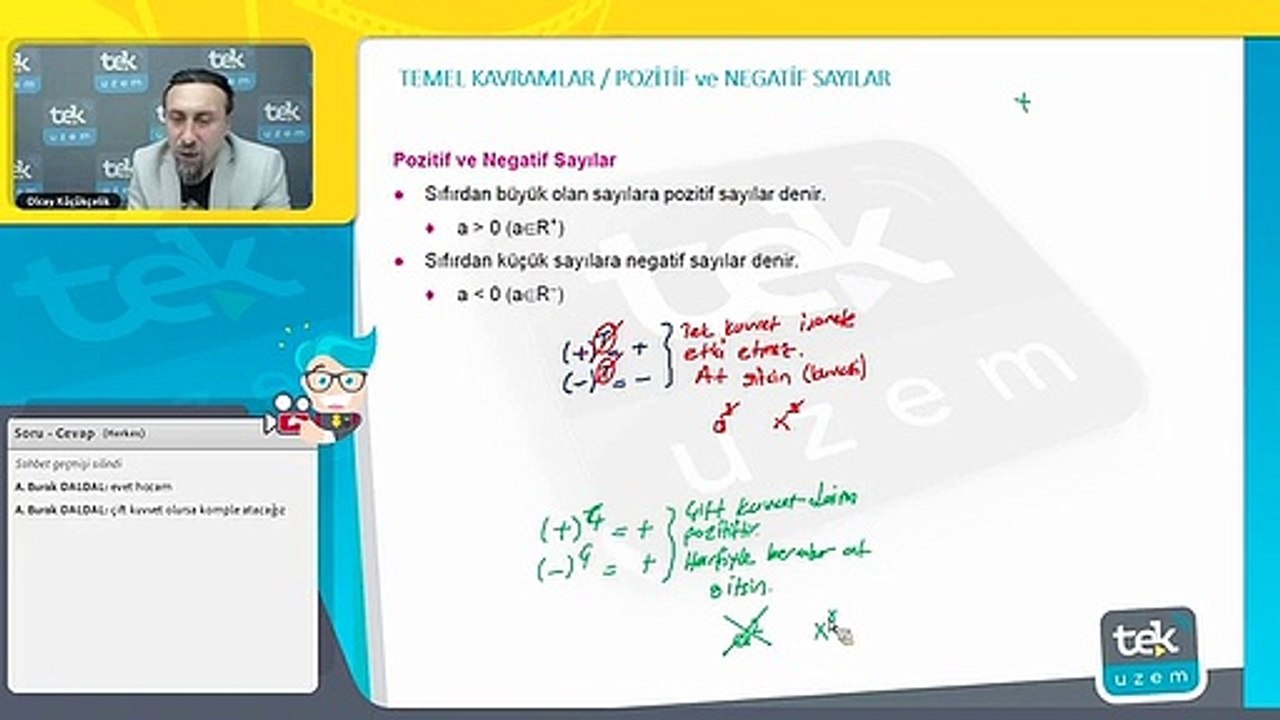 tek
uzem
Olcay Küçükçelik
TEMEL KAVRAMLAR / POZİTİF ve NEGATİF SAYILAR
+
Pozitif ve Negatif Sayılar
• Sıfırdan büyük olan sayılara pozitif sayılar denir.
♦ a > 0 (a∈R⁺)
• Sıfırdan küçük sayılara negatif sayılar denir.
♦ a < 0 (a∈R⁻)
(+)ᵀ = + } Tek kuvvet işarete
etki etmez.
(-)ᵀ = - At gitsin (kuvveti)
(+)^Ç = + } Çift kuvvet daima
pozitiftir.
(-)^Ç = + Harfiyle beraber at
gitsin.
Soru - Cevap (Herkes)
Sohbet geçmişi silindi
A. Burak DALDAL: evet hocam
A. Burak DALDAL: çift kuvvet olursa komple atacağız
tek
uzem